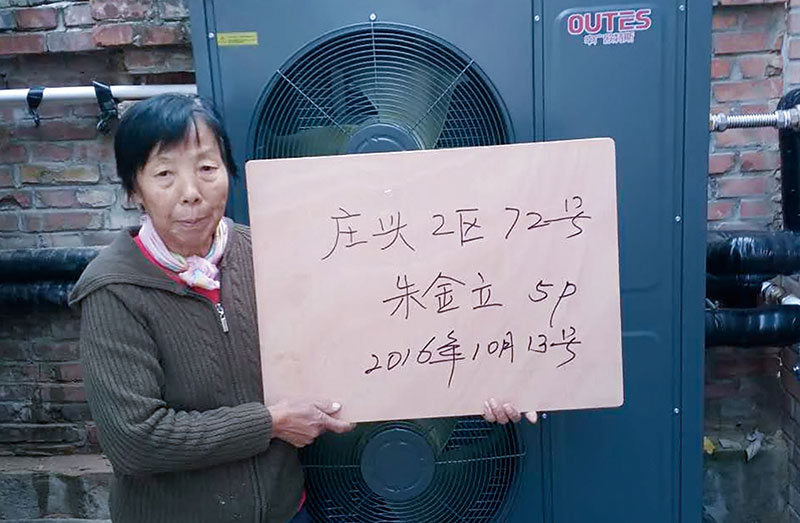 OUTES
中广欧特斯
庄头2区72号
朱金立 5P
2016年10月13号